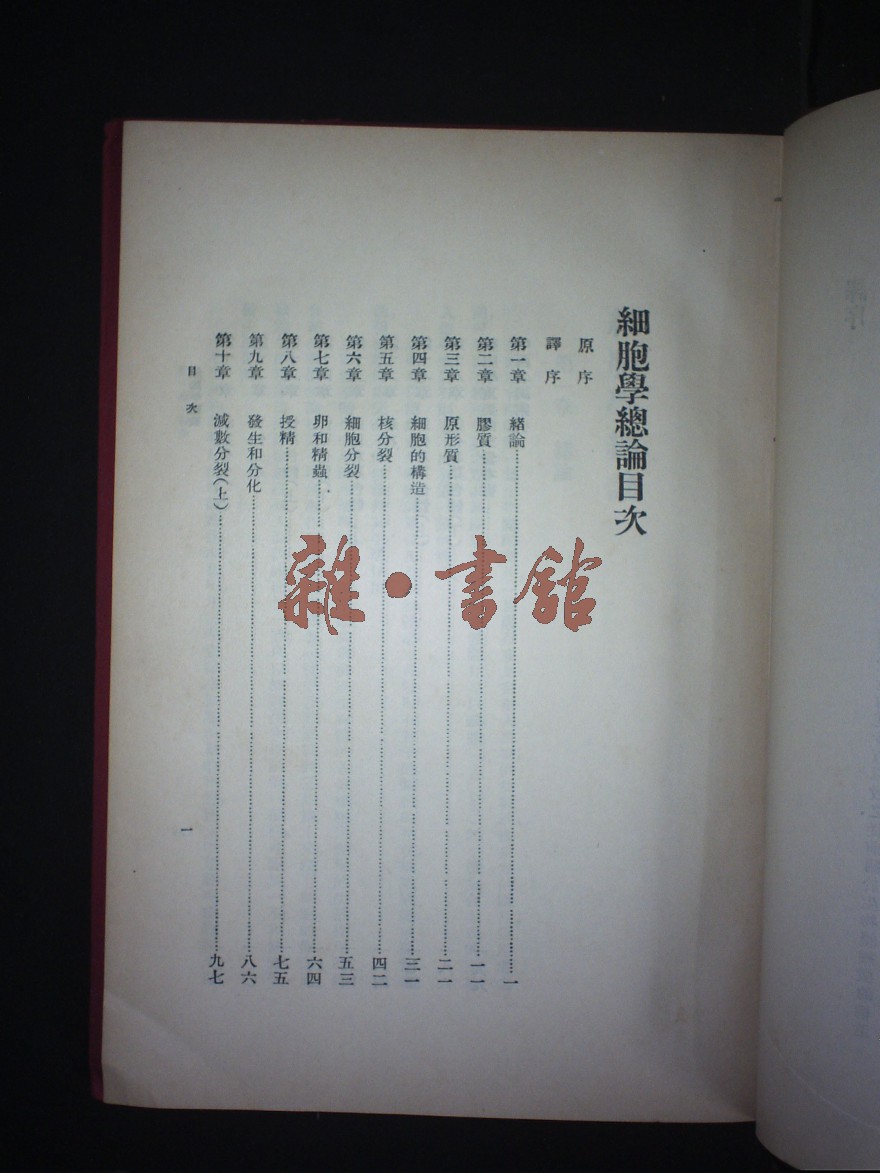 細胞學總論目次
原序
譯序
第一章 緒論 一
第二章 膠質 一一
第三章 原形質 二一
第四章 細胞的構造 三一
第五章 核分裂 四二
第六章 細胞分裂 五三
第七章 卵和精蟲 六四
第八章 授精 七五
第九章 發生和分化 八六
第十章 減數分裂(上) 九七
目次
一
雜·書館
譯序